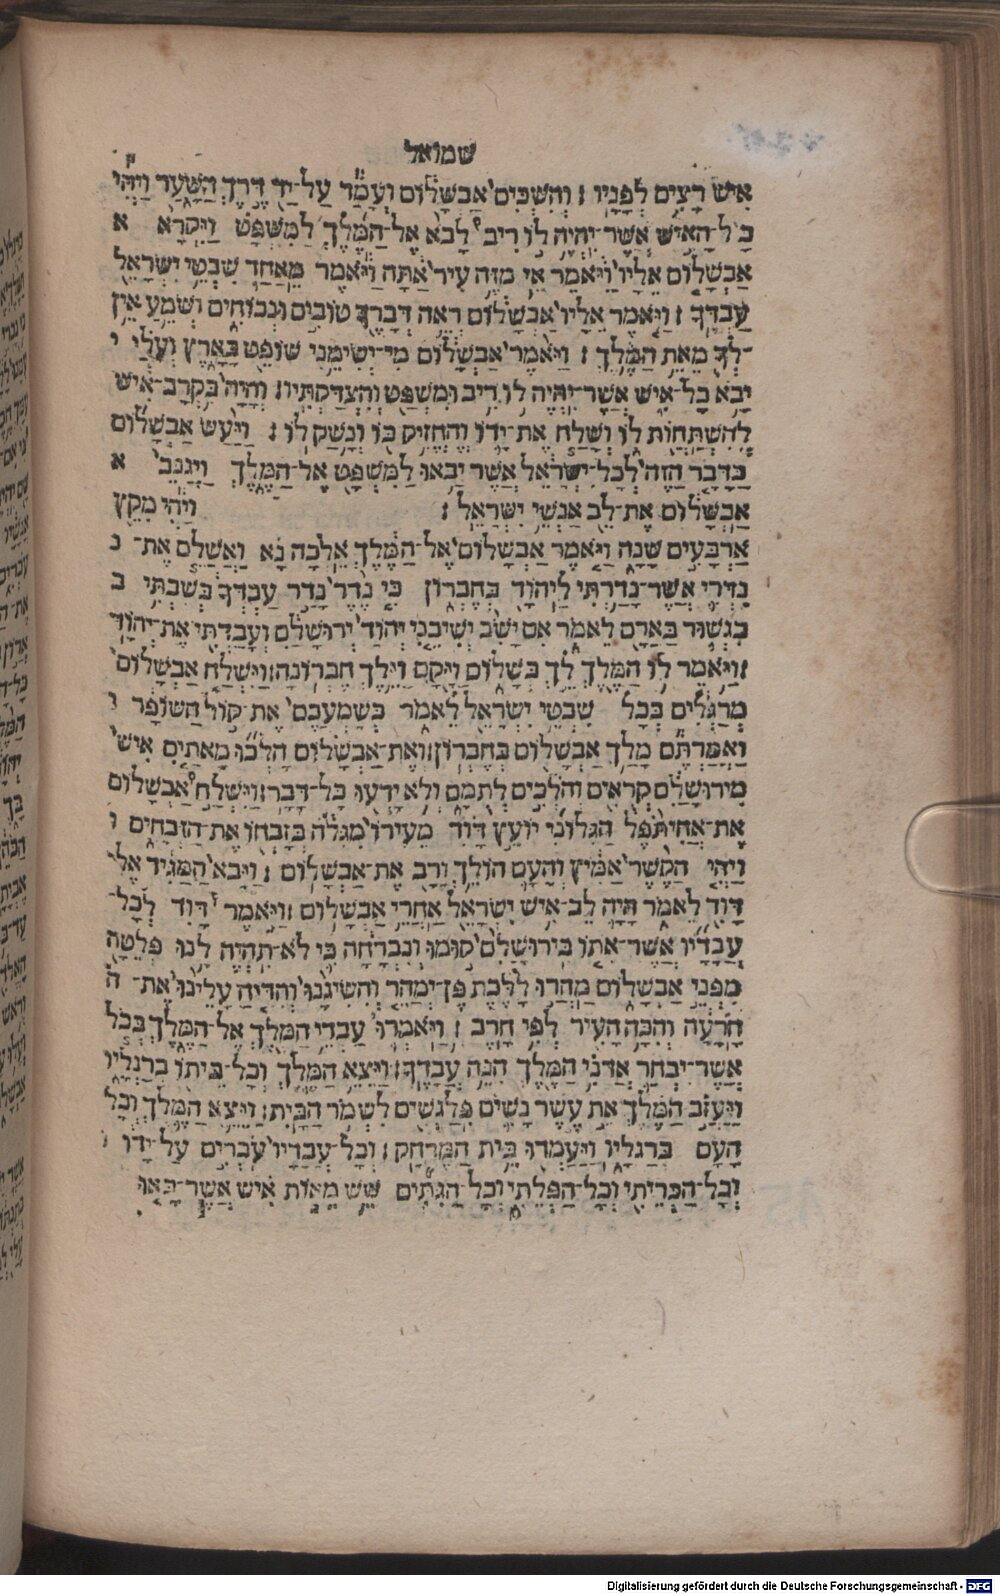 שמואל
אִישׁ רָצִים לְפָנָיו : וְהִשְׁכִּים אַבְשָׁלוֹם וְעָמַד עַל־יַד דֶּרֶךְ הַשָּׁעַר וַיְהִי
כָּל־הָאִישׁ אֲשֶׁר־יִהְיֶה לּוֹ רִיב לָבֹא אֶל־הַמֶּלֶךְ לַמִּשְׁפָּט וַיִּקְרָא א
אַבְשָׁלוֹם אֵלָיו וַיֹּאמֶר אֵי מִזֶּה עִיר אַתָּה וַיֹּאמֶר מֵאַחַד שִׁבְטֵי יִשְׂרָאֵל
עַבְדֶּךָ : וַיֹּאמֶר אֵלָיו אַבְשָׁלוֹם רְאֵה דְבָרֶךָ טוֹבִים וּנְכוֹחִים וְשֹׁמֵעַ אֵין
־לְךָ מֵאֵת הַמֶּלֶךְ : וַיֹּאמֶר אַבְשָׁלוֹם מִי־יְשִׂימֵנִי שׁוֹפֵט בָּאָרֶץ וְעָלַי י
יָבֹא כָּל־אִישׁ אֲשֶׁר־יִהְיֶה לּוֹ רִיב וּמִשְׁפָּט וְהִצְדַּקְתִּיו : וְהָיָה בִּקְרָב־אִישׁ
לְהִשְׁתַּחֲוֹת לוֹ וְשָׁלַח אֶת־יָדוֹ וְהֶחֱזִיק בּוֹ וְנָשַׁק לוֹ : וַיַּעַשׂ אַבְשָׁלוֹם
כַּדָּבָר הַזֶּה לְכָל־יִשְׂרָאֵל אֲשֶׁר יָבֹאוּ לַמִּשְׁפָּט אֶל־הַמֶּלֶךְ וַיְגַנֵּב א
אַבְשָׁלוֹם אֶת־לֵב אַנְשֵׁי יִשְׂרָאֵל : וַיְהִי מִקֵּץ
אַרְבָּעִים שָׁנָה וַיֹּאמֶר אַבְשָׁלוֹם אֶל־הַמֶּלֶךְ אֵלְכָה נָא וַאֲשַׁלֵּם אֶת־ נ
נִדְרִי אֲשֶׁר־נָדַרְתִּי לַיהוָֹד בְּחֶבְרוֹן כִּי נֵדֶר נָדַר עַבְדְּךָ בְּשִׁבְתִּי ב
בִגְשׁוּר בַּאֲרָם לֵאמֹר אִם יָשׁוֹב יְשִׁיבֵנִי יְהוָֹד יְרוּשָׁלַ͏ִם וְעָבַדְתִּי אֶת־יְהוָֹד
: וַיֹּאמֶר לוֹ הַמֶּלֶךְ לֵךְ בְּשָׁלוֹם וַיָּקָם וַיֵּלֶךְ חֶבְרוֹנָה : וַיִּשְׁלַח אַבְשָׁלוֹם
מְרַגְּלִים בְּכָל שִׁבְטֵי יִשְׂרָאֵל לֵאמֹר כְּשָׁמְעֲכֶם אֶת־קוֹל הַשּׁוֹפָר ו
וַאֲמַרְתֶּם מָלַךְ אַבְשָׁלוֹם בְּחֶבְרוֹן : וְאֶת־אַבְשָׁלוֹם הָלְכוּ מָאתַיִם אִישׁ
מִירוּשָׁלַ͏ִם קְרֻאִים וְהֹלְכִים לְתֻמָּם וְלֹא יָדְעוּ כָּל־דָּבָר : וַיִּשְׁלַח אַבְשָׁלוֹם
אֶת־אֲחִיתֹפֶל הַגִּלוֹנִי יוֹעֵץ דָּוִד מֵעִירוֹ מִגִּלֹה בְּזָבְחוֹ אֶת־הַזְּבָחִים ו
וַיְהִי הַקֶּשֶׁר אַמִּיץ וְהָעָם הוֹלֵךְ וָרָב אֶת־אַבְשָׁלוֹם : וַיָּבֹא הַמַּגִּיד אֶל
דָּוִד לֵאמֹר הָיָה לֶב־אִישׁ יִשְׂרָאֵל אַחֲרֵי אַבְשָׁלוֹם : וַיֹּאמֶר דָּוִד לְכָל־
עֲבָדָיו אֲשֶׁר־אִתּוֹ בִירוּשָׁלַ͏ִם קוּמוּ וְנִבְרָחָה כִּי לֹא־תִהְיֶה לָּנוּ פְלֵטָה
מִפְּנֵי אַבְשָׁלוֹם מַהֲרוּ לָלֶכֶת פֶּן־יְמַהֵר וְהִשִּׂיגָנוּ וְהִדִּיחַ עָלֵינוּ אֶת־ ה
הָרָעָה וְהִכָּה הָעִיר לְפִי חָרֶב : וַיֹּאמְרוּ עַבְדֵי הַמֶּלֶךְ אֶל־הַמֶּלֶךְ בְּכֹל
אֲשֶׁר־יִבְחַר אֲדֹנִי הַמֶּלֶךְ הִנֵּה עֲבָדֶיךָ : וַיֵּצֵא הַמֶּלֶךְ וְכָל־בֵּיתוֹ בְּרַגְלָיו
וַיַּעֲזֹב הַמֶּלֶךְ אֵת עֶשֶׂר נָשִׁים פִּלַגְשִׁים לִשְׁמֹר הַבָּיִת : וַיֵּצֵא הַמֶּלֶךְ וְכָל
הָעָם בְּרַגְלָיו וַיַּעַמְדוּ בֵּית הַמֶּרְחָק : וְכָל־עֲבָדָיו עֹבְרִים עַל־יָדוֹ ו
וְכָל־הַכְּרֵיתִי וְכָל־הַפְּלֵתִי וְכָל־הַגִּתִּים שֵׁשׁ מֵאוֹת אִישׁ אֲשֶׁר־בָּאוּ
Digitalisierung gefördert durch die Deutsche Forschungsgemeinschaft - DFG